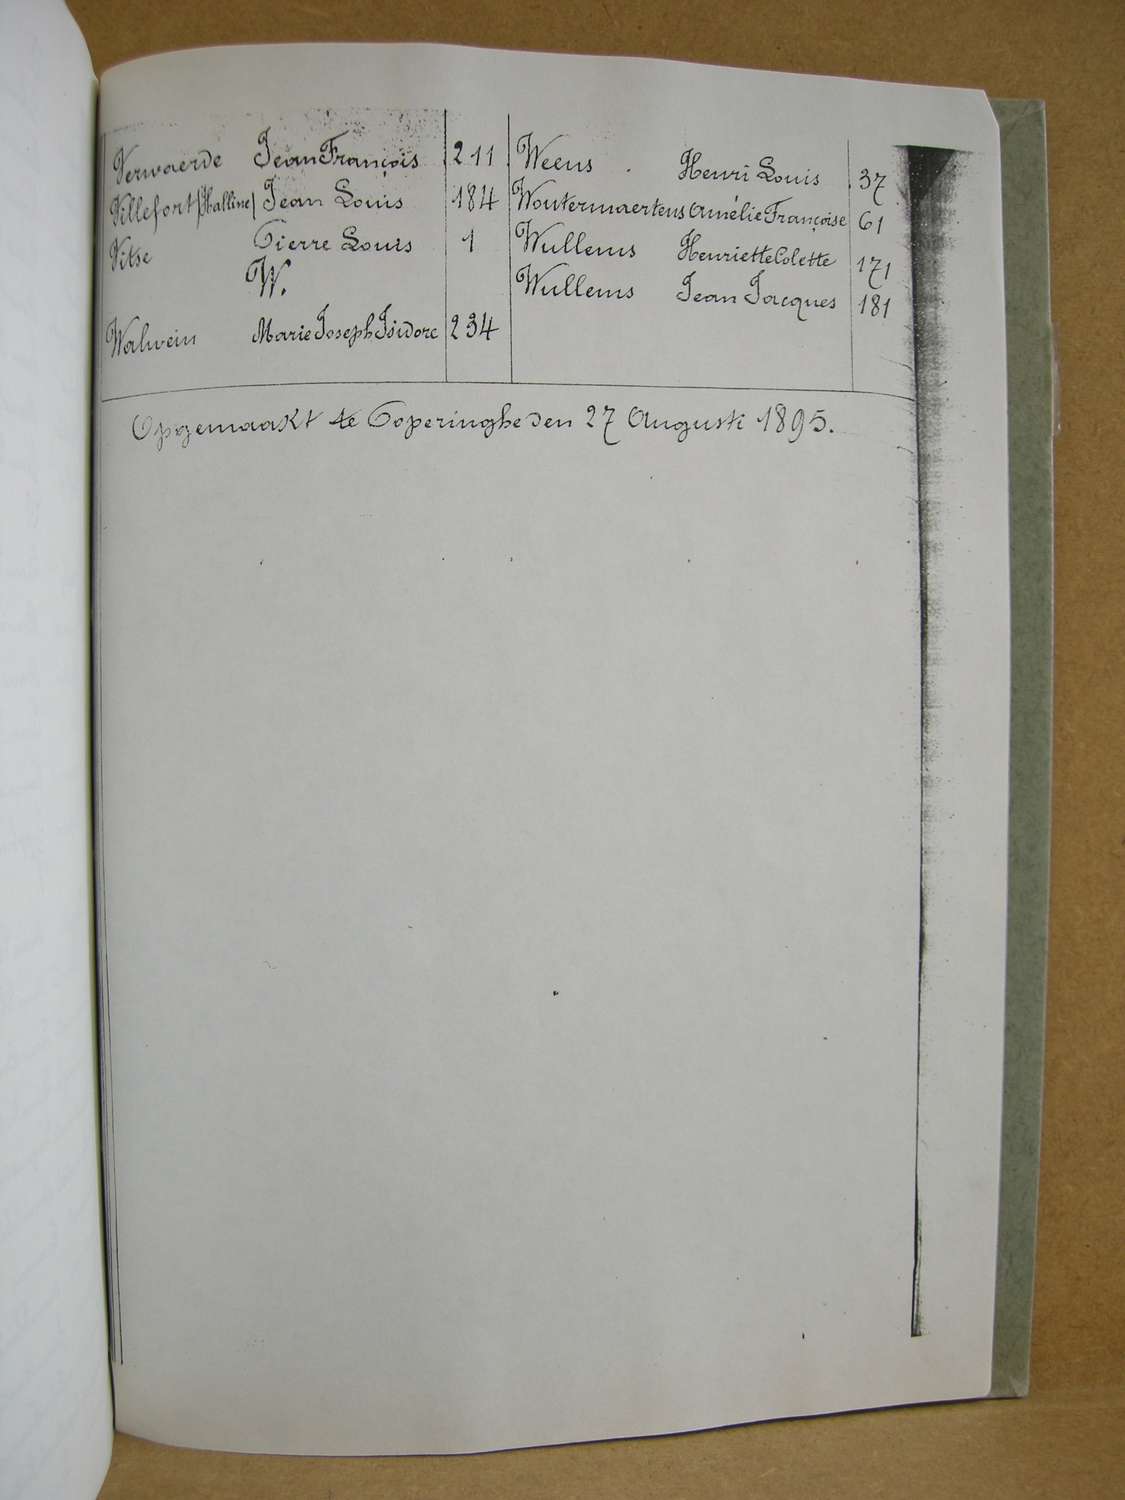 Verwaerde Jean François 211
Villefort (Halline) Jean Louis 184
Vitse Pierre Louis 1
W.
Walwein Marie Joseph Isidore 234
Weens Henri Louis 37
Woutermaertens Amélie Françoise 61
Wullems Henriette Colette 171
Wullems Jean Jacques 181
Opgemaakt te Poperinghe den 27 Augusti 1895.